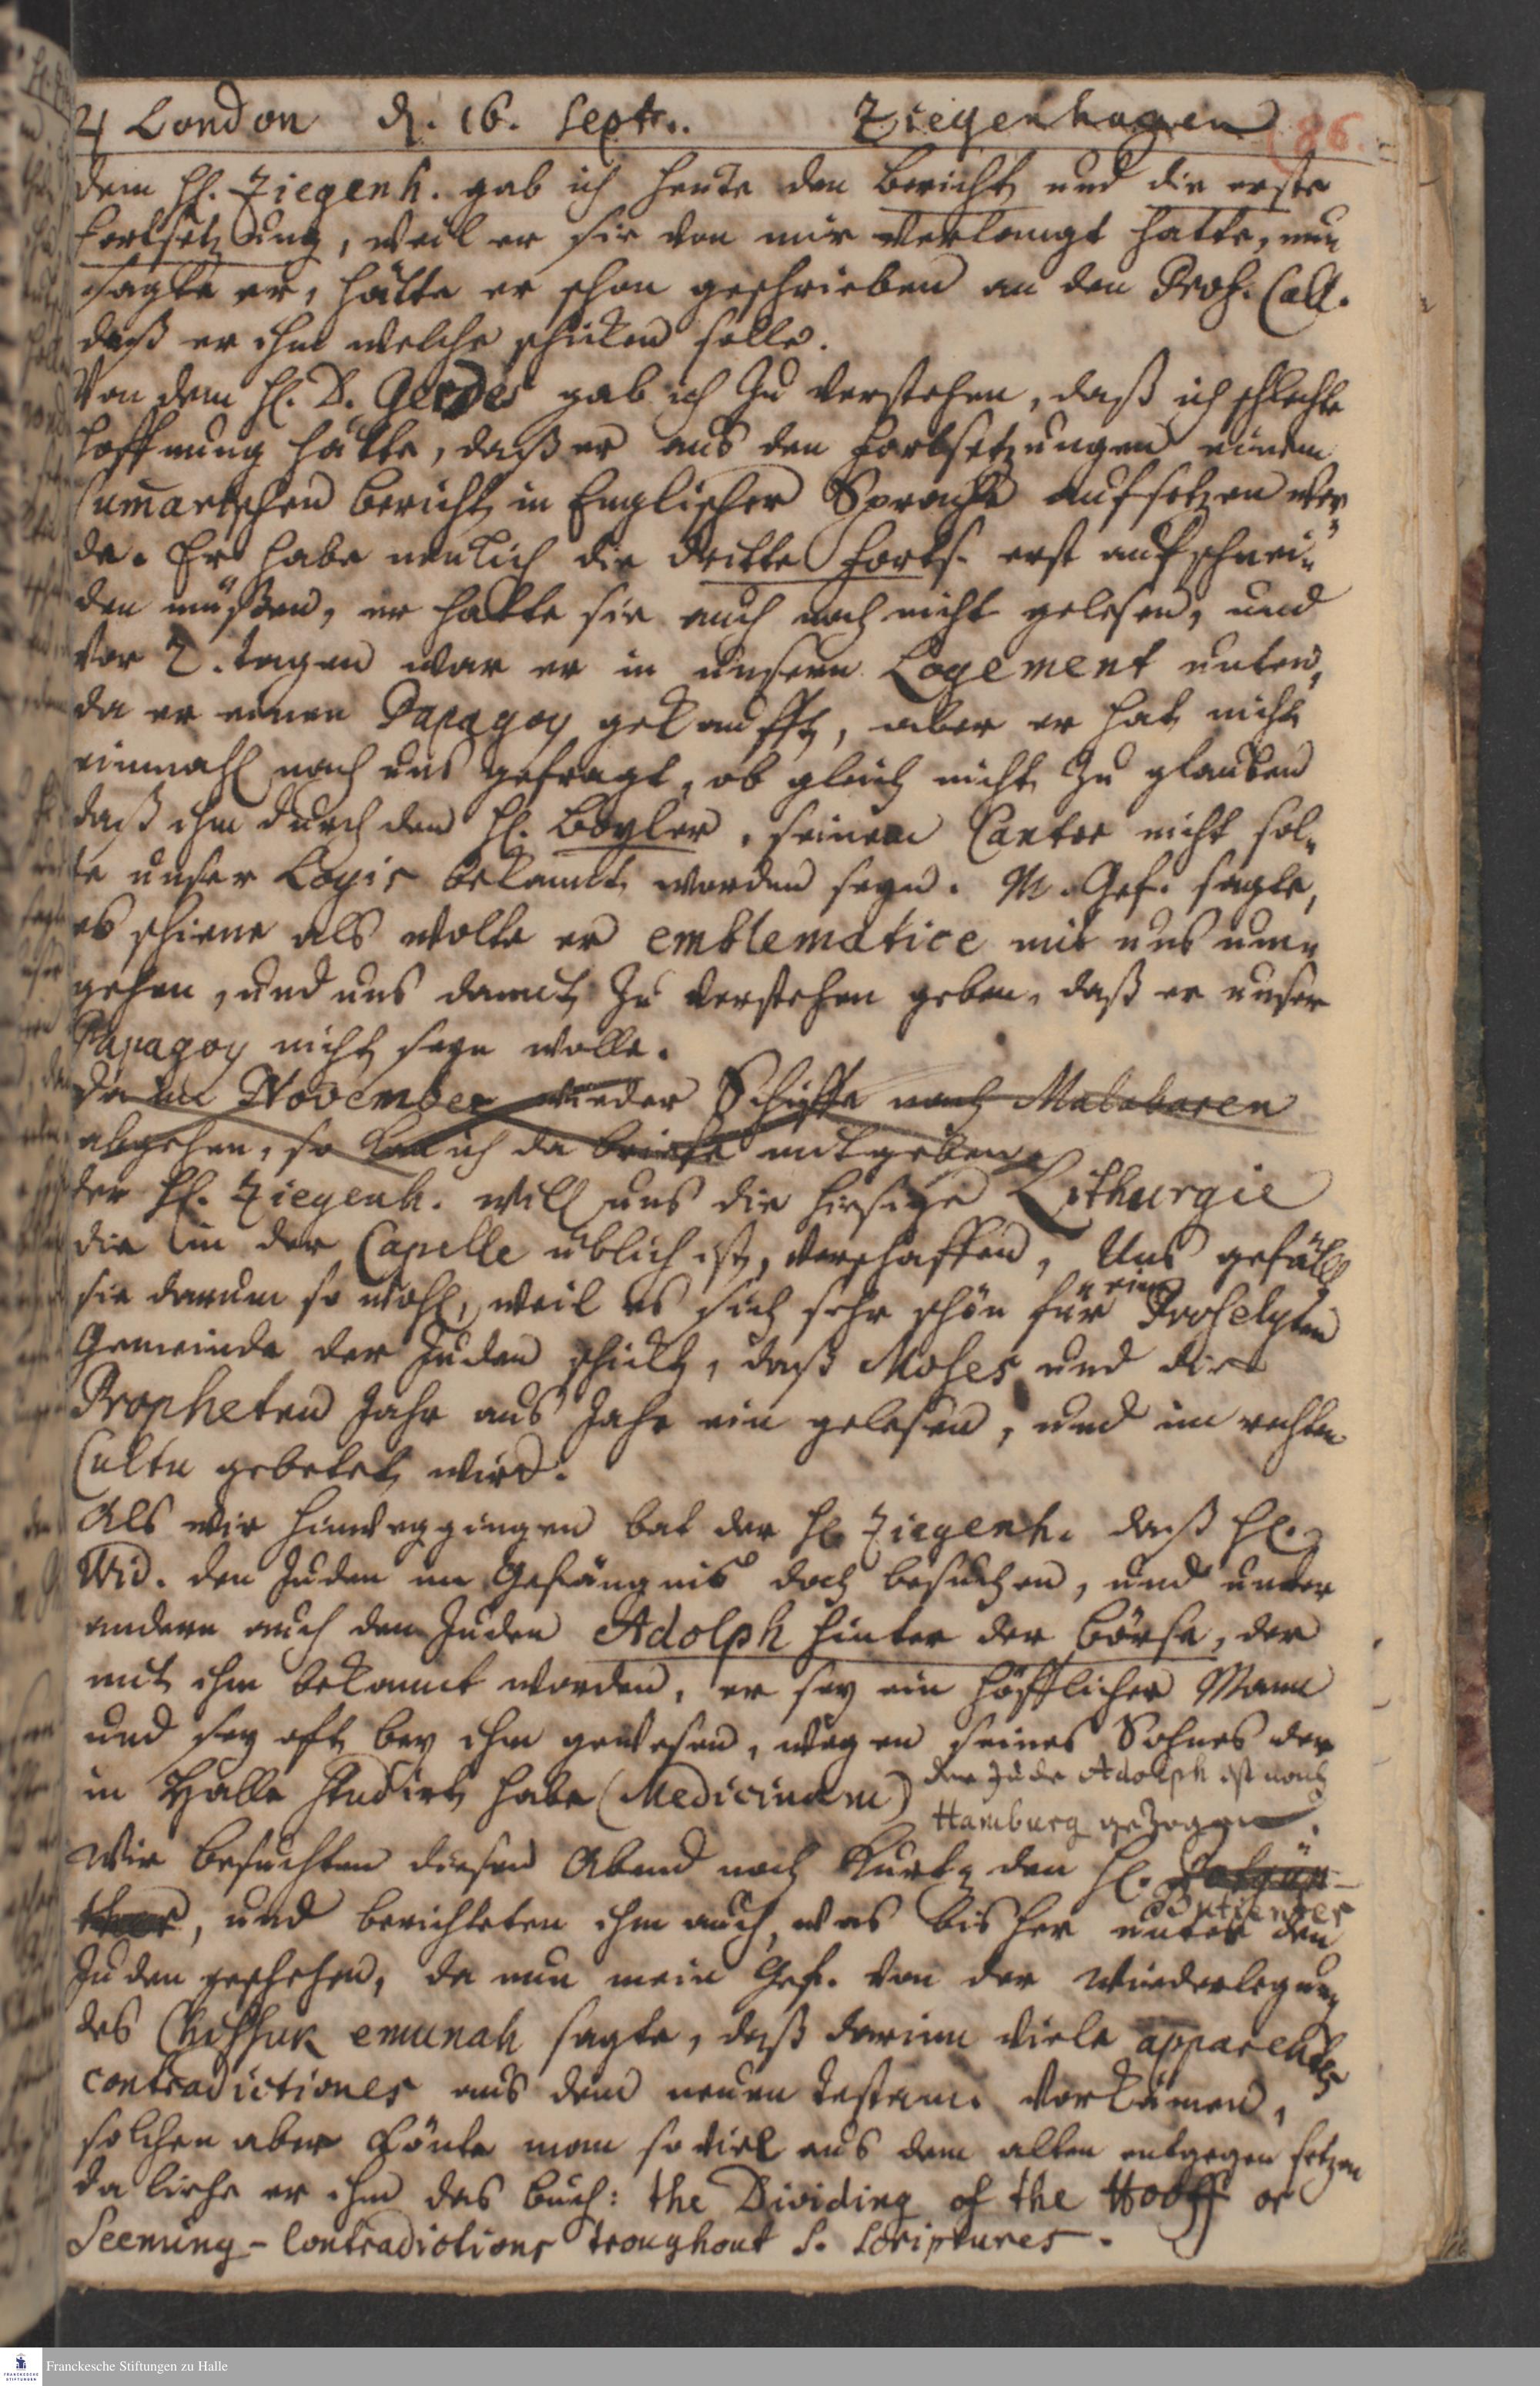 ♃ London d. 16. Septr. Ziegenhagen 86.
dem H. Ziegenh. gab ich heute den Bericht und die erste
Fortsetzung, weil er sie von mir verlangt hatte, nun
sagte er, hätte er schon geschrieben an den Prof. Call.
daß er ihm welche schicken solle.
Von dem H. D. Gerdes gab ich zu verstehen, daß ich schlechte
Hoffnung hätte, daß er aus den Fortsetzungen einen
sumarischen Bericht in Englischer Sprache aufsetzen wer-
de. Er habe neulich die dritte Forts. erst aufschnei-
den müßen, er hatte sie auch noch nicht gelesen, und
vor 2. tagen war er in unserm Logement unten,
da er einen Papagoy gekaufft, aber er hat nicht
einmahl nach uns gefragt, ob gleich nicht zu glauben
daß ihm durch den H. Boyler, seinen Cantor nicht sol-
te unser Logis bekannt worden seyn. M. Gef. sagte,
es schiene als wolte er emblematice mit uns um-
gehen, und uns damit zu verstehen geben, daß er unser
Papagoy nicht seyn wolle.
Da im November wieder Schiffe nach Malabaren
abgehen, so kan ich da briefe mitgeben
der H. Ziegenh. will uns die hiesige Lithurgie
die in der Capelle üblich ist, verschaffen, Uns gefällt
sie darum so wohl, weil es sich sehr schön für eine Proselyten
Gemeinde der Juden schickt, daß Moses und die
Propheten Jahr aus Jahr ein gelesen, und im rechten
Cultu gebetet wird.
Als wir hinweggingen bat der H. Ziegenh. daß H.
Wid. den Juden im Gefängnis doch besuchen, und unter
andern auch den Juden Adolph hinter der Börse, der
mit ihm bekannt worden, er sey ein höfflicher Mann
und sey oft bey ihm gewesen, wegen seines Sohnes der
in Halle studirt habe (Medicinam) der Jude Adolph ist nach
Hamburg gezogen.
Wir besuchten diesen Abend noch kurtz den H.
Butjenter
, und berichteten ihm auch, was bisher unter den
Juden geschehen, da nun mein Gef. von der Wiederlegung
des Chissuk emunah sagte, daß darinn viele apparentes
contradictiones aus dem neuen Testam. vorkämen,
solchen aber könte man so viel aus dem alten entgegen setzen
da liehe er ihm das buch: the Dividing of the Hooff or
Seeming-Contradictions troughout S. Scriptures.
Franckesche Stiftungen zu Halle